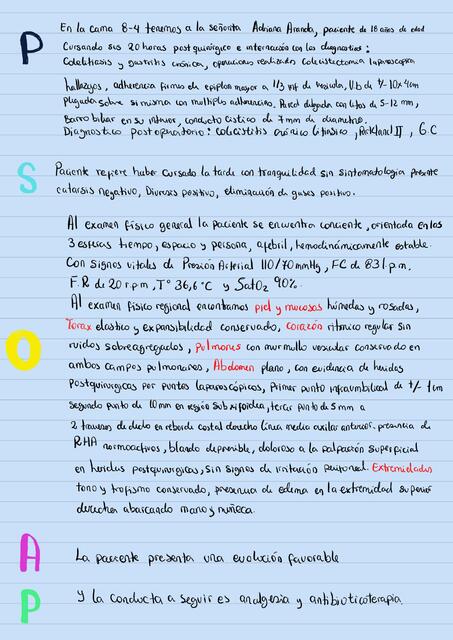 P
En la cama 8-4 tenemos a la señorita Adriana Aranda, paciente de 18 años de edad
Cursando sus 20 horas postquirúrgico e internación con los diagnósticos:
Colelitiasis y gastritis crónica, operaciones realizadas colecistectomía laparoscópica
hallazgos, adherencia firmes de epiplon mayor a 1/3 inf de vesícula, V.b de +/- 10x4cm
Plegada sobre si misma con multiples adherencias. Pared delgada con litos de 5-12 mm,
Barro biliar en su interior, conducto cístico de 7mm de diametro.
Diagnostico postoperatorio: colecistitis crónica litiásica, Parkland II, G.C
S
Paciente refiere haber cursado la tarde con tranquilidad sin sintomatología presente
catarsis negativo, Diuresis positivo, eliminación de gases positivo.
O
Al examen físico general la paciente se encuentra conciente, orientada en las
3 esferas tiempo, espacio y persona, afebril, hemodinámicamente estable.
Con signos vitales de Presión Arterial 110/70mmHg, FC de 83 l.p.m,
F.R de 20 r.p.m, T° 36,6°C y SatO2 90%.
Al examen físico regional encontramos piel y mucosas húmedas y rosadas,
Torax elastico y expansibilidad conservado, corazón rítmico regular sin
ruidos sobreagregados, pulmones con murmullo vesicular conservado en
ambos campos pulmonares, Abdomen plano, con evidencia de heridas
Postquirurgicas por puntos laparoscópicos, Primer punto infraumbilical de +/- 1cm
segundo punto de 10mm en región subxifoidea, tercer punto de 5 mm a
2 traveses de dedo en reborde costal derecho línea media axilar anterior. presencia de
RHA normoactivos, blando depresible, doloroso a la palpación superficial
en heridas postquirurgicas, sin signos de irritación peritoneal. Extremidades
tono y trofismo conservado, presencia de edema en la extremidad superior
derecha abarcando mano y muñeca.
A
La paciente presenta una evolución favorable
P
Y la conducta a seguir es analgesia y antibioticoterapia